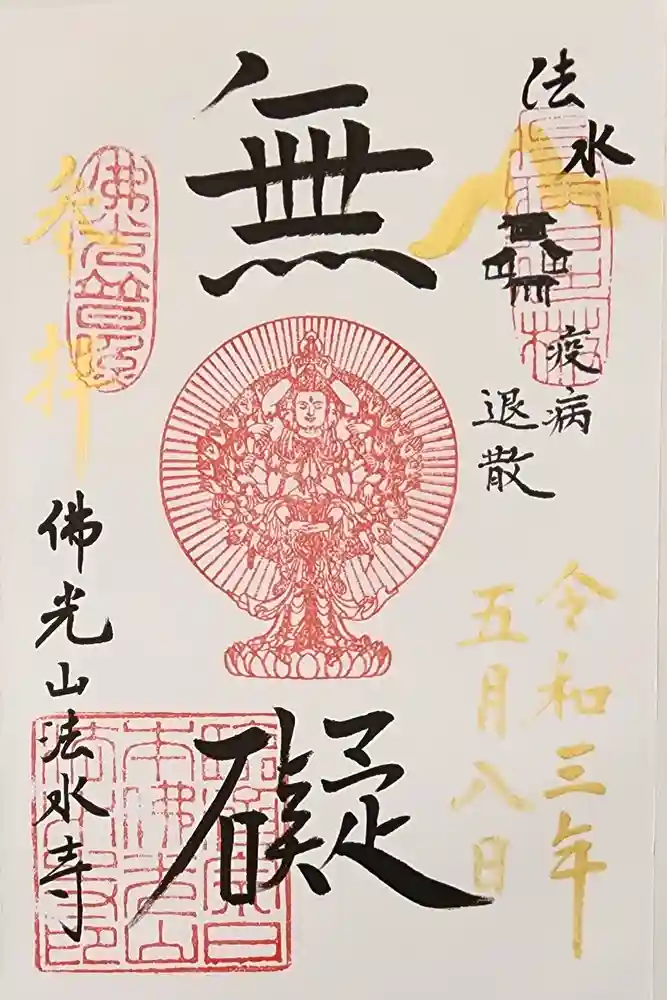 法水
疫病
退散
令和三年
五月八日
無
礙
奉拝
佛光山法水寺